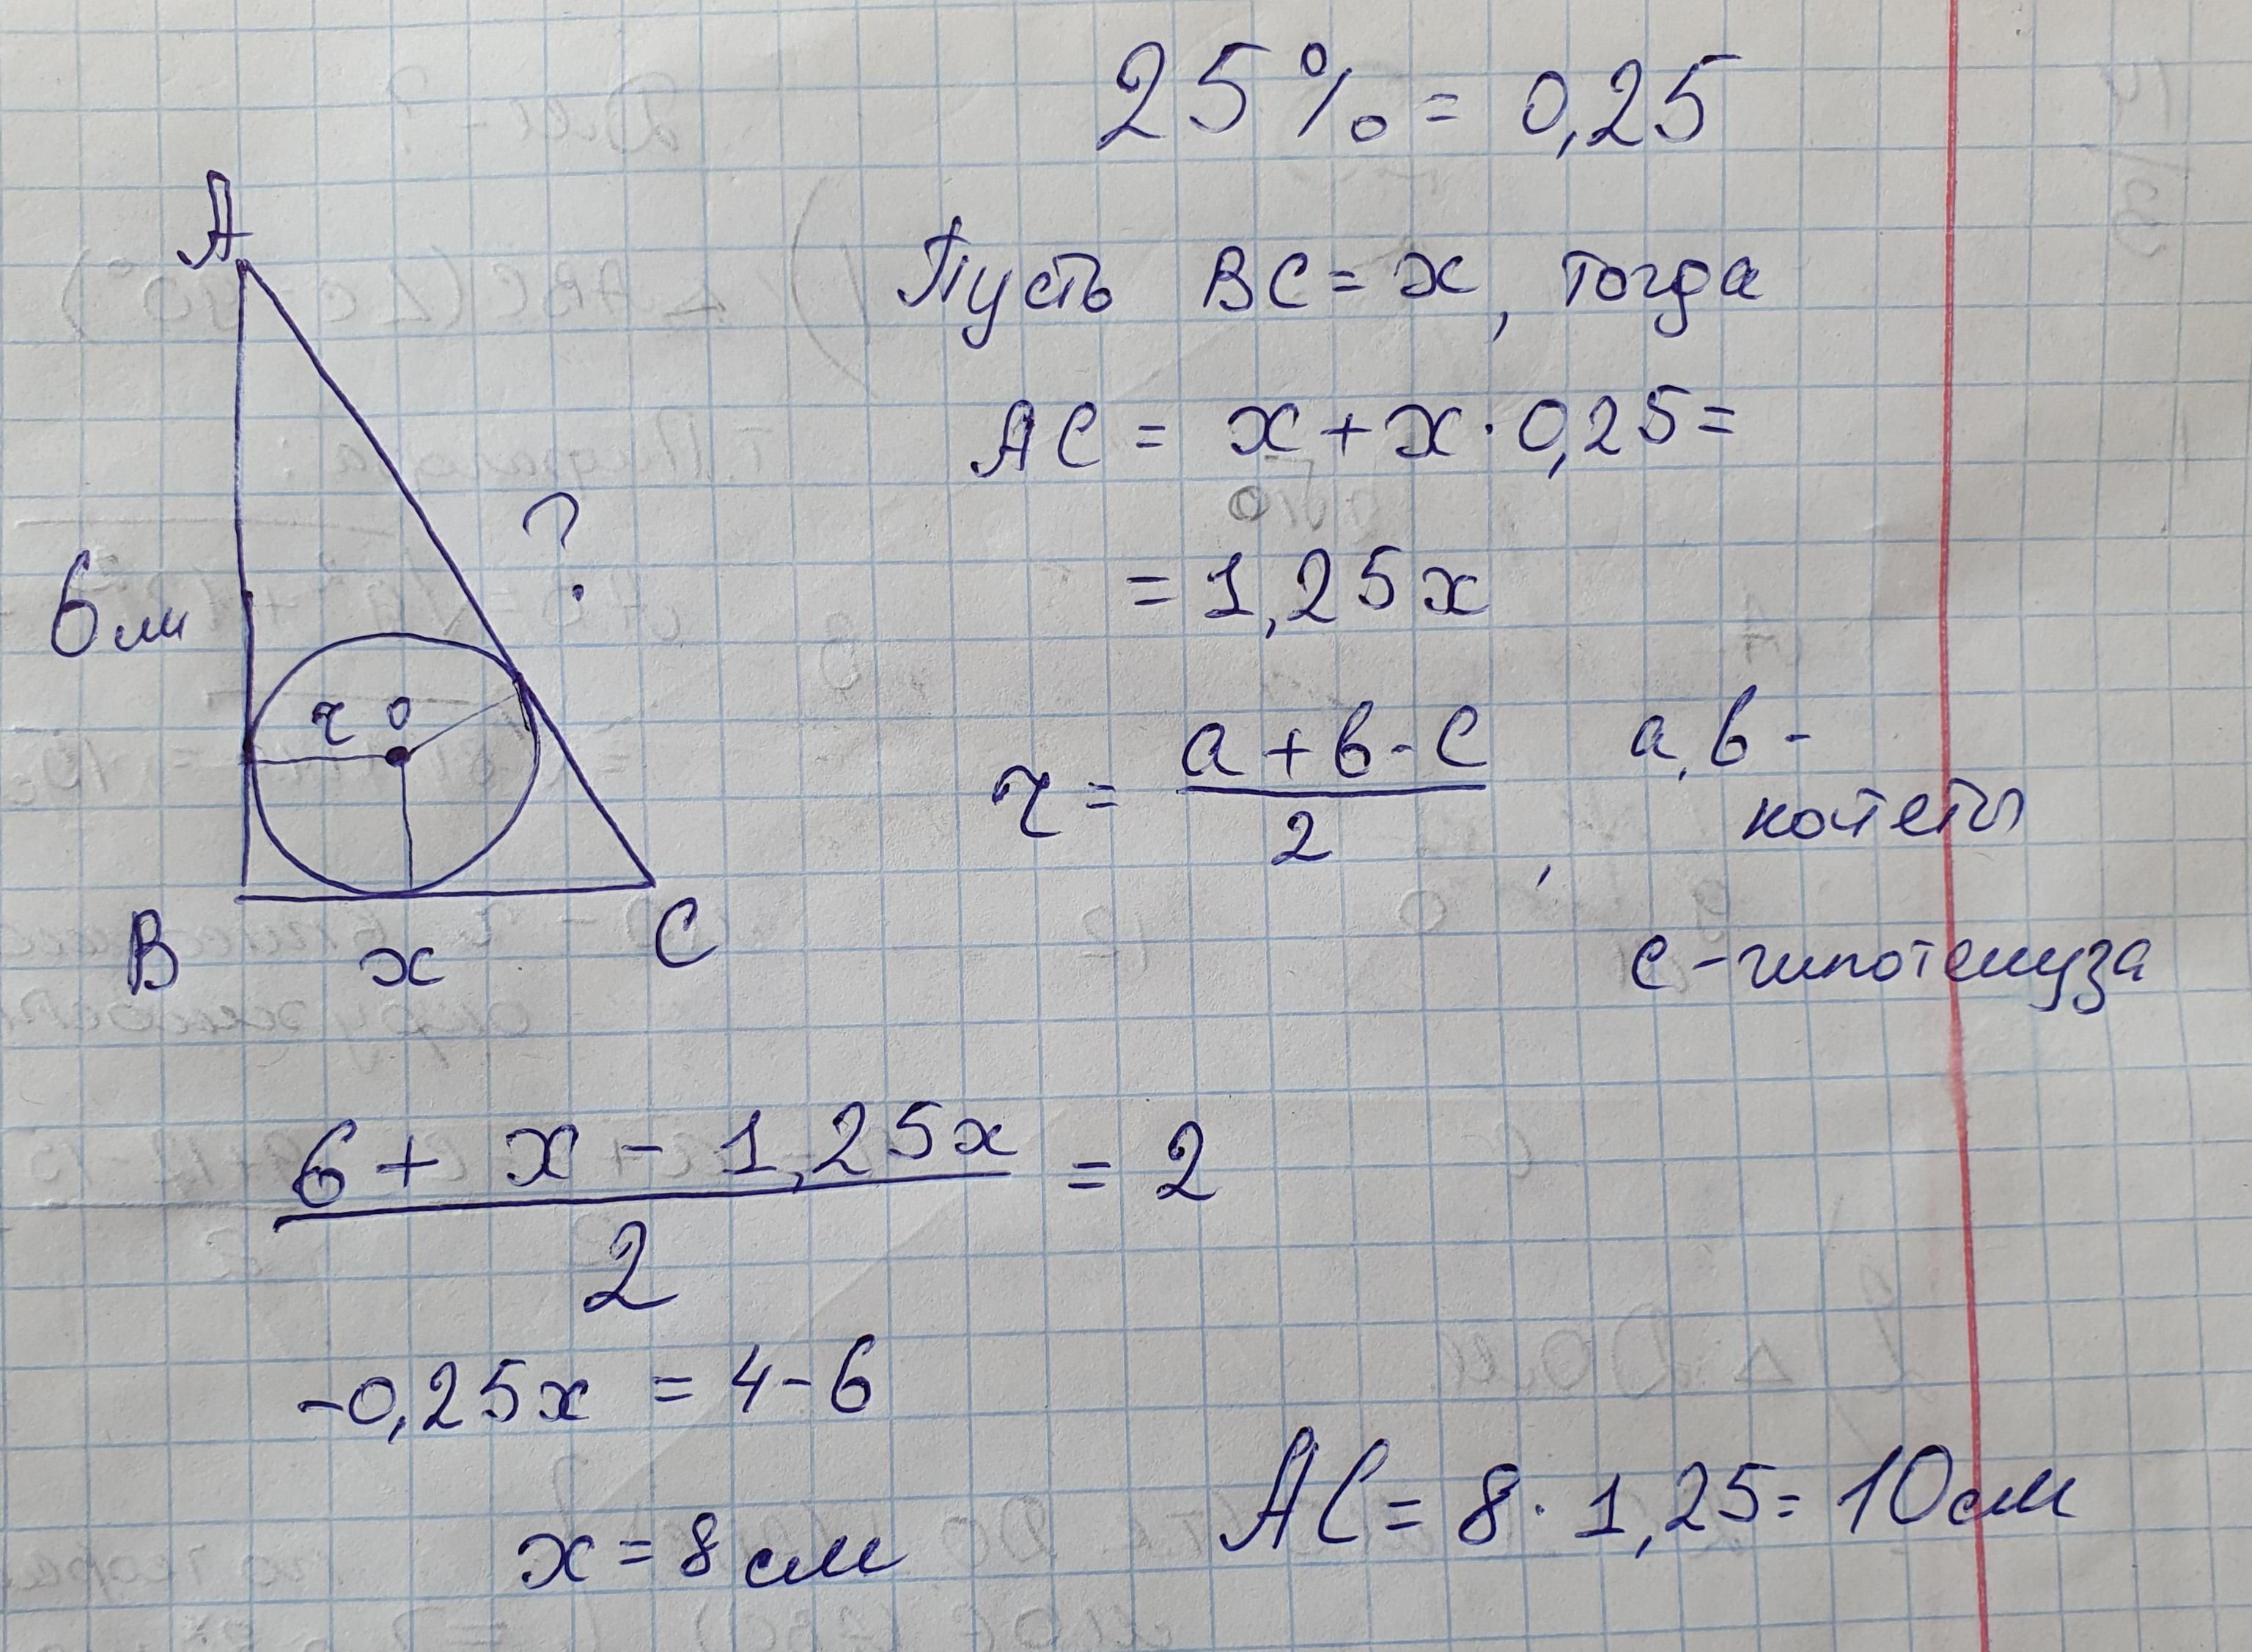 25% = 0,25
A
Пусть BC = x, тогда
AC = x + x · 0,25 =
?
= 1,25x
6 см
r 0
r = (a + b - c) / 2, a, b - катеты
c - гипотенуза
B x C
(6 + x - 1,25x) / 2 = 2
-0,25x = 4 - 6
x = 8 см
AC = 8 · 1,25 = 10 см